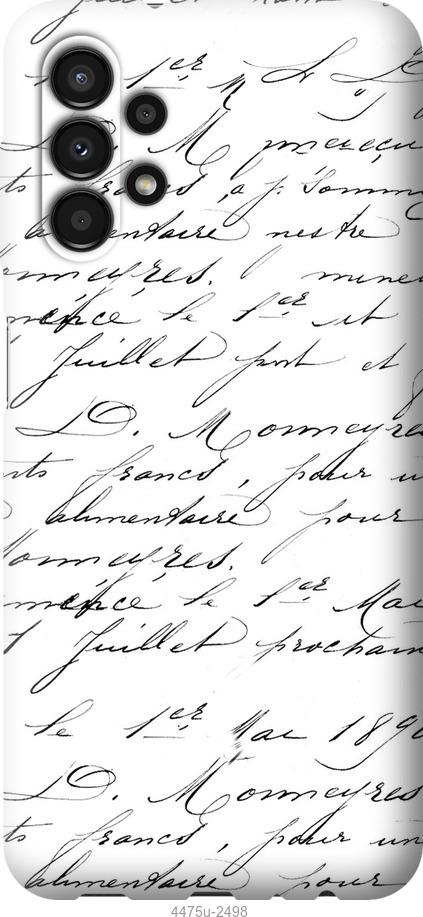 1er M
D. M
ts francs, a p. Somm
alimentaire nestre
onneyres. mine
mence le 1er et
Juillet port et
D. Monneyres
nts francs, pour u
alimentaire pour
Monneyres.
mence le 1er Mai
Juillet prochain
le 1er Mai 189
D. Monneyres
ts francs, pour un
alimentaire pour
4475u-2498